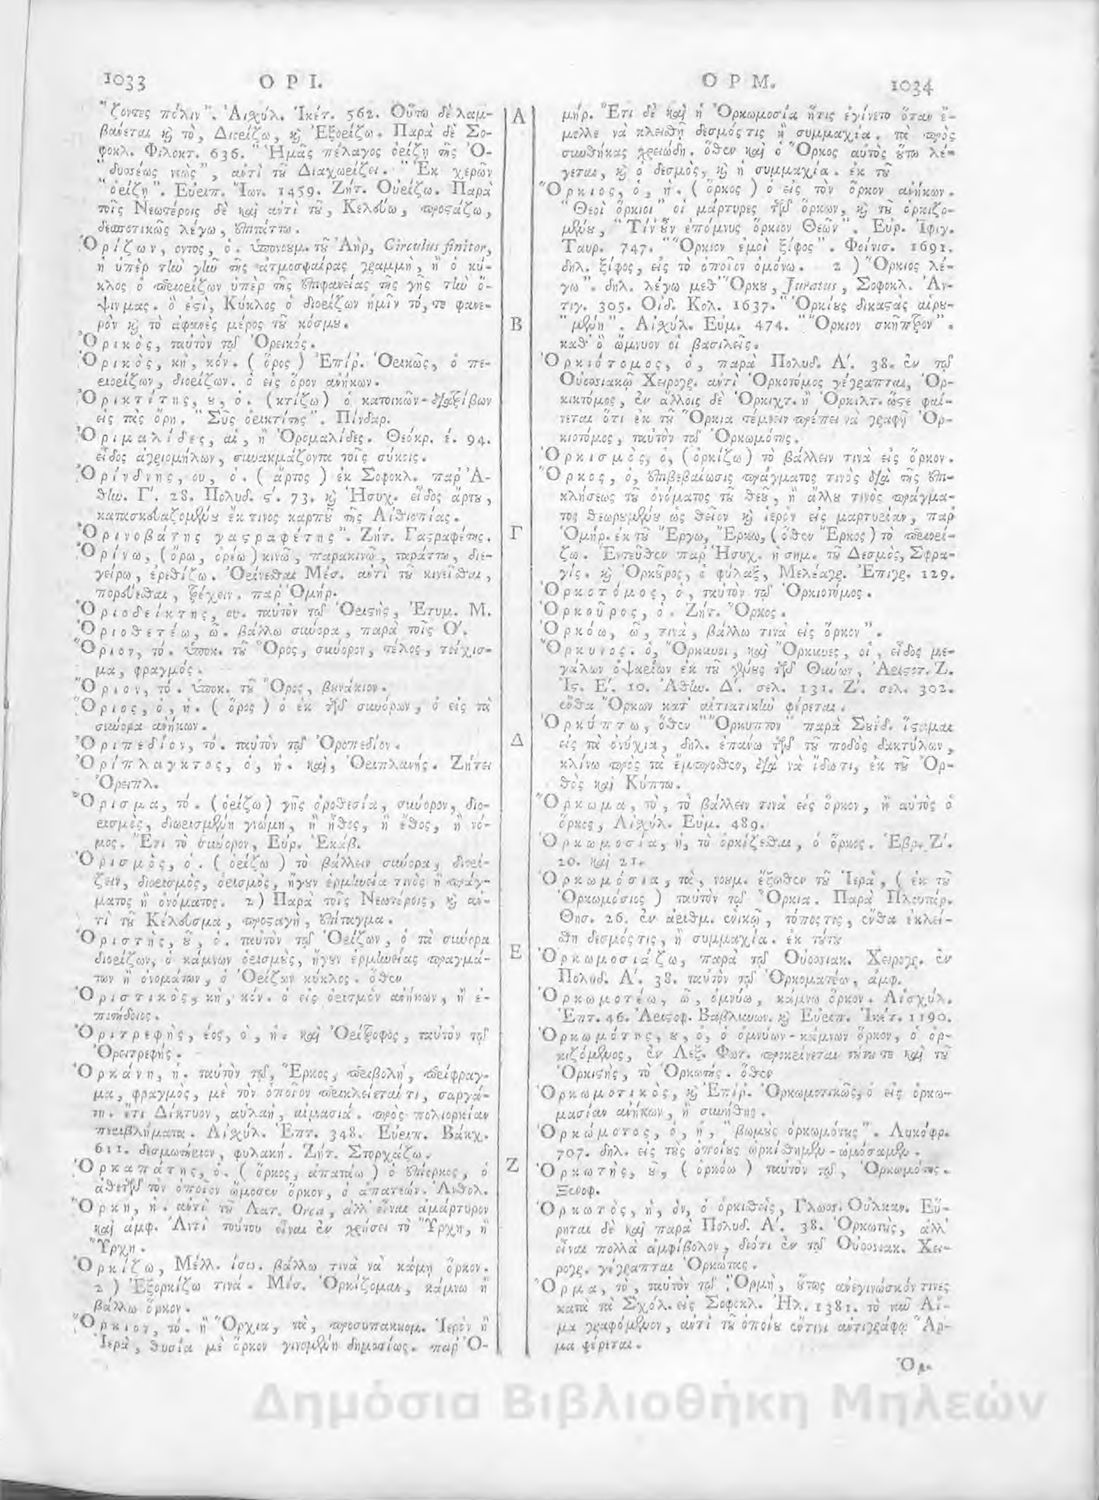 1033 ΟΡΙ.
"ζοντες πόλιν". Αἰσχύλ. Ἱκέτ. 562. Οὕτω δὲ λαμ-
βάνεται καὶ τὸ, Διορίζω, καὶ Ἐξορίζω. Παρὰ δὲ Σο-
φοκλ. Φιλοκτ. 636. "Ἡμᾶς πέλαγος ὁρίζῃ τῆς Ὀ-
"δυσσέως νεώς", ἀντὶ τοῦ Διαχωρίζει. "Ἐκ χερῶν
"ὁρίζῃ". Εὐριπ. Ἴων. 1459. Ζήτ. Οὐρίζω. Παρὰ
τοῖς Νεωτέροις δὲ καὶ ἀντὶ τοῦ, Κελεύω, προστάζω,
δεσποτικῶς λέγω, ἐπιτάττω.
Ὁρίζων, οντος, ὁ. ὑπονουμ. τοῦ Ἀὴρ, Circulus finitor,
ἡ ὑπὲρ τὴν γῆν τῆς ἀτμοσφαίρας γραμμὴ, ἢ ὁ κύ-
κλος ὁ περιορίζων ὑπὲρ τῆς ἐπιφανείας τῆς γῆς τὴν ὄ-
ψιν μας. ὅ ἐστὶ, Κύκλος ὁ διορίζων ἡμῖν τό,τε φανε-
ρὸν καὶ τὸ ἀφανὲς μέρος τοῦ κόσμου.
Ὀρικὸς, ταὐτὸν τῷ Ὀρεικός.
Ὁρικὸς, κὴ, κόν. (ὅρος) Ἐπίρ. Ὁρικῶς, ὁ πε-
ριορίζων, διορίζων. ὁ εἰς ὅρον ἀνήκων.
Ὀρικτίτης, ου, ὁ. (κτίζω) ὁ κατοικῶν-διατρίβων
εἰς τὰς ὄρη. "Σῦς ὀρικτίτης". Πίνδαρ.
Ὀριμαλίδες, αἱ, ἢ Ὀρομαλίδες. Θεόκρ. έ. 94.
εἶδος ἀγριομήλων, συνακμάζοντα τοῖς σύκοις.
Ὀρίνδνης, ου, ὁ. (ἄρτος) ἐκ Σοφοκλ. παρ' Ἀ-
θήν. Γ'. 28. Πολυδ. ς'. 73. καὶ Ἡσυχ. εἶδος ἄρτου,
κατασκευαζομένου ἔκ τινος καρποῦ τῆς Αἰθιοπίας.
"Ὀρινοβάτης γαςραφέτης". Ζήτ. Γαςραφέτης.
Ὀρίνω, (ὄρω, ὀρέω) κινῶ, παρακινῶ, ταράττω, διε-
γείρω, ἐρεθίζω. Ὀρίνεσθαι Μέσ. ἀντὶ τοῦ κινεῖσθαι,
πορεύεσθαι, τρέχειν. παρ' Ὁμήρ.
Ὁριοδείκτης, ου. ταὐτὸν τῷ Ὁριστὴς, Ἐτυμ. Μ.
Ὁριοθετέω, ῶ. βάλλω σύνορα, παρὰ τοῖς Ο'.
Ὅριον, τό. ὑποκ. τοῦ Ὅρος, σύνορον, τέλος, τείχισ-
μα, φραγμός.
Ὄριον, τό. ὑποκ. τοῦ Ὄρος, βουνάκιον.
Ὅριος, ὁ, ἡ. (ὅρος) ὁ ἐκ τῶν συνόρων, ὁ εἰς τὰ
σύνορα ἀνήκων.
Ὀριπεδίον, τό. ταὐτὸν τῷ Ὀροπεδίον.
Ὀρίπλαγκτος, ὁ, ἡ. καὶ, Ὀριπλανής. Ζήτει
Ὀρειπλ.
Ὅρισμα, τό. (ὁρίζω) γῆς ὁροθεσία, σύνορον, διο-
ρισμὸς, διωρισμένη γνώμη, ἢ ἦθος, ἢ ἔθος, ἢ νό-
μος. Ἔτι τὸ σύνορον, Εὐρ. Ἑκάβ.
Ὁρισμὸς, ὁ. (ὁρίζω) τὸ βάλλειν σύνορα, διορί-
ζειν, διορισμὸς, ὁρισμὸς, ἤγουν ἑρμηνεία τινὸς ἢ πράγ-
ματος ἢ ὀνόματος. 2) Παρὰ τοῖς Νεωτέροις, καὶ ἀν-
τὶ τοῦ Κέλευσμα, προςαγὴ, ἐπίταγμα.
Ὁριστὴς, οῦ, ὁ. ταὐτὸν τῷ Ὁρίζων, ὁ τὰ σύνορα
διορίζων, ὁ κάμνων ὁρισμοὺς, ἤγουν ἑρμηνείας πραγμά-
των ἢ ὀνομάτων, ὁ Ὁρίζων κύκλος. ὅθεν
Ὁριστικὸς, κὴ, κόν. ὁ εἰς ὁρισμὸν ἀνήκων, ἢ ἐ-
πιτήδειος.
Ὀριτρεφὴς, έος, ὁ, ἡ. καὶ Ὀρίτροφος, ταὐτὸν τῷ
Ὀρειτρεφής.
Ὁρκάνη, ἡ. ταὐτὸν τῷ, Ἕρκος, περιβολὴ, περίφραγ-
μα, φραγμὸς, μὲ τὸν ὁποῖον περικλείεταί τι, σαργά-
νη. ἔτι Δίκτυον, αὐλαὴ, αἱμασιά. πρὸς πολιορκίαν
περιβλήματα. Αἰσχύλ. Ἑπτ. 348. Εὐριπ. Βάκχ.
611. δεσμωτήριον, φυλακή. Ζήτ. Στορχάζω.
Ὁρκαπάτης, ὁ. (ὅρκος, ἀπατάω) ὁ ἐπίορκος, ὁ
ἀθετῶν τὸν ὁποῖον ὤμοσεν ὅρκον, ὁ ἀπατεών. Ἀνθολ.
Ὄρκη, ἡ. ἀντὶ τοῦ Λατ. Orca, ἀλλ' εἶναι ἀμάρτυρον
καὶ ἀμφ. Ἀντὶ τούτου εἶναι ἐν χρήσει τὸ Ὕρχη, ἢ
Ὕρχη.
Ὁρκίζω, Μέλλ. ίσω. βάλλω τινὰ νὰ κάμῃ ὅρκον.
2) Ἐξορκίζω τινά. Μέσ. Ὁρκίζομαι, κάμνω ἢ
βάλλω ὅρκον.
Ὅρκιον, τό. ἢ Ὅρχια, τὰ, προσυπακουομ. Ἱερὸν ἢ
Ἱερὰ, θυσία μὲ ὅρκον γινομένη δημοσίως. παρ' Ὁ-
Α
Β
Γ
Δ
Ε
Ζ
ΟΡΜ. 1034
μήρ. Ἔτι δὲ καὶ ἡ Ὁρκωμοσία ἥτις ἐγίνετο ὅταν ἔ-
μελλε νὰ κλεισθῇ δεσμός τις ἢ συμμαχία. τὰ πρὸς
συνθήκας χρειώδη. ὅθεν καὶ ὁ Ὅρκος αὐτὸς οὕτω λέ-
γεται, καὶ ὁ δεσμὸς, καὶ ἡ συμμαχία. ἐκ τοῦ
Ὅρκιος, ὁ, ἡ. (ὅρκος) ὁ εἰς τὸν ὅρκον ἀνήκων.
"Θεοὶ ὅρκιοι" οἱ μάρτυρες τῶν ὅρκων, καὶ τοῦ ὁρκιζο-
μένου, "Τίν' οὖν ἐπόμνυς ὅρκιον Θεῶν". Εὐρ. Ἰφιγ.
Ταυρ. 747. "Ὅρκιον ἐμοὶ ξίφος". Φοίνισ. 1691.
δηλ. ξίφος, εἰς τὸ ὁποῖον ὀμόνω. 2) "Ὅρκιος λέ-
γω". δηλ. λέγω μεθ' Ὅρκου, Juratus, Σοφοκλ. Ἀν-
τιγ. 305. Οἰδ. Κολ. 1637. "Ὁρκίους δικαςὰς αἱρου-
"μένη". Αἰσχύλ. Εὐμ. 474. "Ὅρκιον σκῆπτρον".
καθ' ὃ ὤμνυον οἱ βασιλεῖς.
Ὁρκιότομος, ὁ, παρὰ Πολυδ. Α'. 38. ἐν τῷ
Οὐοσσιακῷ Χειρογρ. ἀντὶ Ὁρκοτόμος γέγραπται, Ὁρ-
κικτόμος, ἐν ἄλλοις δὲ Ὁρκιχτ. ἢ Ὁρκιλτ. ὥςε φαί-
νεται ὅτι ἐκ τοῦ Ὅρκια τέμνειν πρέπει νὰ γραφῇ Ὁρ-
κιοτόμος, ταὐτὸν τῷ Ὁρκωμότης.
Ὁρκισμὸς, ὁ, (ὁρκίζω) τὸ βάλλειν τινὰ εἰς ὅρκον.
Ὅρκος, ὁ, ἐπιβεβαίωσις πράγματος τινὸς διὰ τῆς ἐπι-
κλήσεως τοῦ ὀνόματος τοῦ θεοῦ, ἢ ἄλλου τινὸς πράγμα-
τος θεωρουμένου ὡς θεῖον καὶ ἱερὸν εἰς μαρτυρίαν, παρ'
Ὁμήρ. ἐκ τοῦ Ἔργω, Ἕρκω, (ὅθεν Ἕρκος) τὸ περιορί-
ζω. Ἐντεῦθεν παρ' Ἡσυχ. ἡ σημ. τοῦ Δεσμὸς, Σφρα-
γίς. καὶ Ὁρκοῦρος, ὁ φύλαξ, Μελέαγρ. Ἐπιγρ. 129.
Ὁρκοτόμος, ὁ, ταὐτὸν τῷ Ὁρκιοτόμος.
Ὁρκοῦρος, ὁ. Ζήτ. Ὅρκος.
Ὁρκόω, ῶ, τινὰ, βάλλω τινὰ εἰς ὅρκον".
Ὄρκυνος. ὁ, Ὄρκυνοι, καὶ Ὄρκυνες, οἱ, εἶδος με-
γάλων ὀψαρίων ἐκ τοῦ γένους τῶν Θύννων, Ἀριςοτ. Ζ.
Ἱς. Ε'. 10. Ἀθήν. Δ'. σελ. 131. Ζ'. σελ. 302.
ἔνθα Ὄρκων κατ' αἰτιατικὴν φέρεται.
Ὀρκύπτω, ὅθεν "Ὀρκυπτον" παρὰ Σουΐδ. ἵςαμαι
εἰς τὰ ὀνύχια, δηλ. ἐπάνω τῶν τοῦ ποδὸς δακτύλων,
κλίνω πρὸς τὰ ἔμπροσθεν, διὰ νὰ ἴδω τι, ἐκ τοῦ Ὀρ-
θὸς καὶ Κύπτω.
Ὅρκωμα, τὸ, τὸ βάλλειν τινὰ εἰς ὅρκον, ἢ αὐτὸς ὁ
ὅρκος, Αἰσχύλ. Εὐμ. 489.
Ὁρκωμοσία, ἡ, τὸ ὁρκίζεσθαι, ὁ ὅρκος. Ἑβρ. Ζ'.
20. καὶ 21.
Ὁρκωμόσια, τὰ, νουμ. ἔξωθεν τοῦ Ἱερὰ, (ἐκ τοῦ
Ὁρκωμόσιος) ταὐτὸν τῷ Ὅρκια. Παρὰ Πλουτάρ.
Θησ. 26. ἐν ἀριθμ. ἑνικῷ, τόπος τις, ἔνθα ἐκλεί-
σθη δεσμός τις, ἢ συμμαχία. ἐκ τούτου
Ὁρκωμοσιάζω, παρὰ τῷ Οὐοσσιακ. Χειρογρ. ἐν
Πολυδ. Α'. 38. ταὐτὸν τῷ Ὁρκοματέω, ἀμφ.
Ὁρκωμοτέω, ῶ, ὀμνύω, κάμνω ὅρκον. Αἰσχύλ.
Ἑπτ. 46. Ἀριςοφ. Βαβιλωνιων. καὶ Εὐριπ. Ἱκέτ. 1190.
Ὁρκωμότης, ου, ὁ, ὁ ὀμνύων-κάμνων ὅρκον, ὁ ὁρ-
κιζόμενος, ἐν Λεξ. Φωτ. προκρίνεται τούτου τε καὶ τοῦ
Ὁρκιςὴς, τὸ Ὁρκωτής. ὅθεν
Ὁρκωμοτικὸς, καὶ Ἐπίρ. Ὁρκωμοτικῶς, ὁ εἰς ὁρκω-
μασίαν ἀνήκων, ἢ συνήθης.
Ὁρκώμοτος, ὁ, ἡ, "βωμοὺς ὁρκωμότους". Λυκόφρ.
707. δηλ. εἰς τοὺς ὁποίους ὡρκίσθημεν-ὠμόσαμεν.
Ὁρκωτὴς, οῦ, (ὁρκόω) ταὐτὸν τῷ, Ὁρκωμότης.
Ξενοφ.
Ὁρκωτὸς, ἡ, ὸν, ὁ ὁρκισθεὶς, Γλωσσ. Οὐλκαν. Εὕ-
ρηται δὲ καὶ παρὰ Πολυδ. Α'. 38. Ὁρκωτοὺς, ἀλλ'
εἶναι πολλὰ ἀμφίβολον, διότι ἐν τῷ Οὐοσσιακ. Χει-
ρογρ. γέγραπται Ὁρκώτας.
Ὅρμα, τὸ, ταὐτὸν τῷ Ὁρμὴ, οὕτως ἀνεγινώσκόν τινες
κατὰ τὰ Σχόλ. εἰς Σοφοκλ. Ἠλ. 1381. τὸ νῦν Αἷ-
μα γραφόμενον, ἀντὶ τοῦ ὁποίου ἔντινι ἀντιγράφῳ Ἅρ-
μα φέρεται.
Ὅρ-
Δημόσια Βιβλιοθήκη Μηλεών